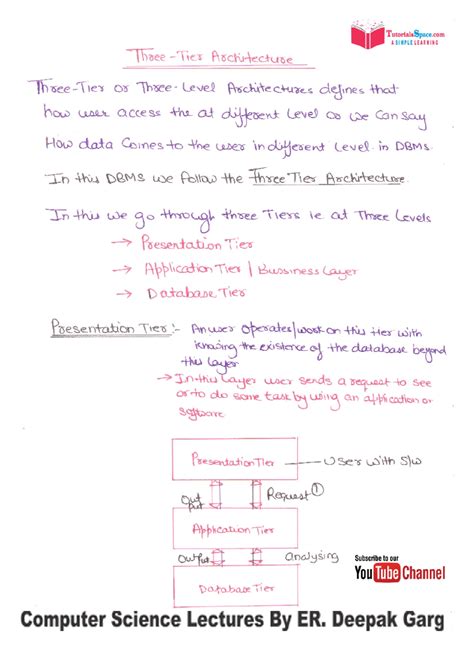 TutorialsSpace.com
A SIMPLE LEARNING
Three-Tier Architecture
Three-Tier or Three-Level Architectures defines that
how user access the at different Level or we can say
How data Comes to the user in different Level in DBMS.
In this DBMS we follow the Three Tier Architecture.
In this we go through three Tiers ie at Three Levels
→ Presentation Tier
→ Application Tier / Bussiness Layer
→ Database Tier
Presentation Tier:- An user operates/work on this tier with
knowing the existence of the database beyond
this layer
→ In this layer user sends a request to see
or to do some task by using an application or
software
Presentation Tier — User with S/w
Out put Request ①
Application Tier
Output analysing
Database Tier
Subscribe to our
YouTube Channel
Computer Science Lectures By ER. Deepak Garg